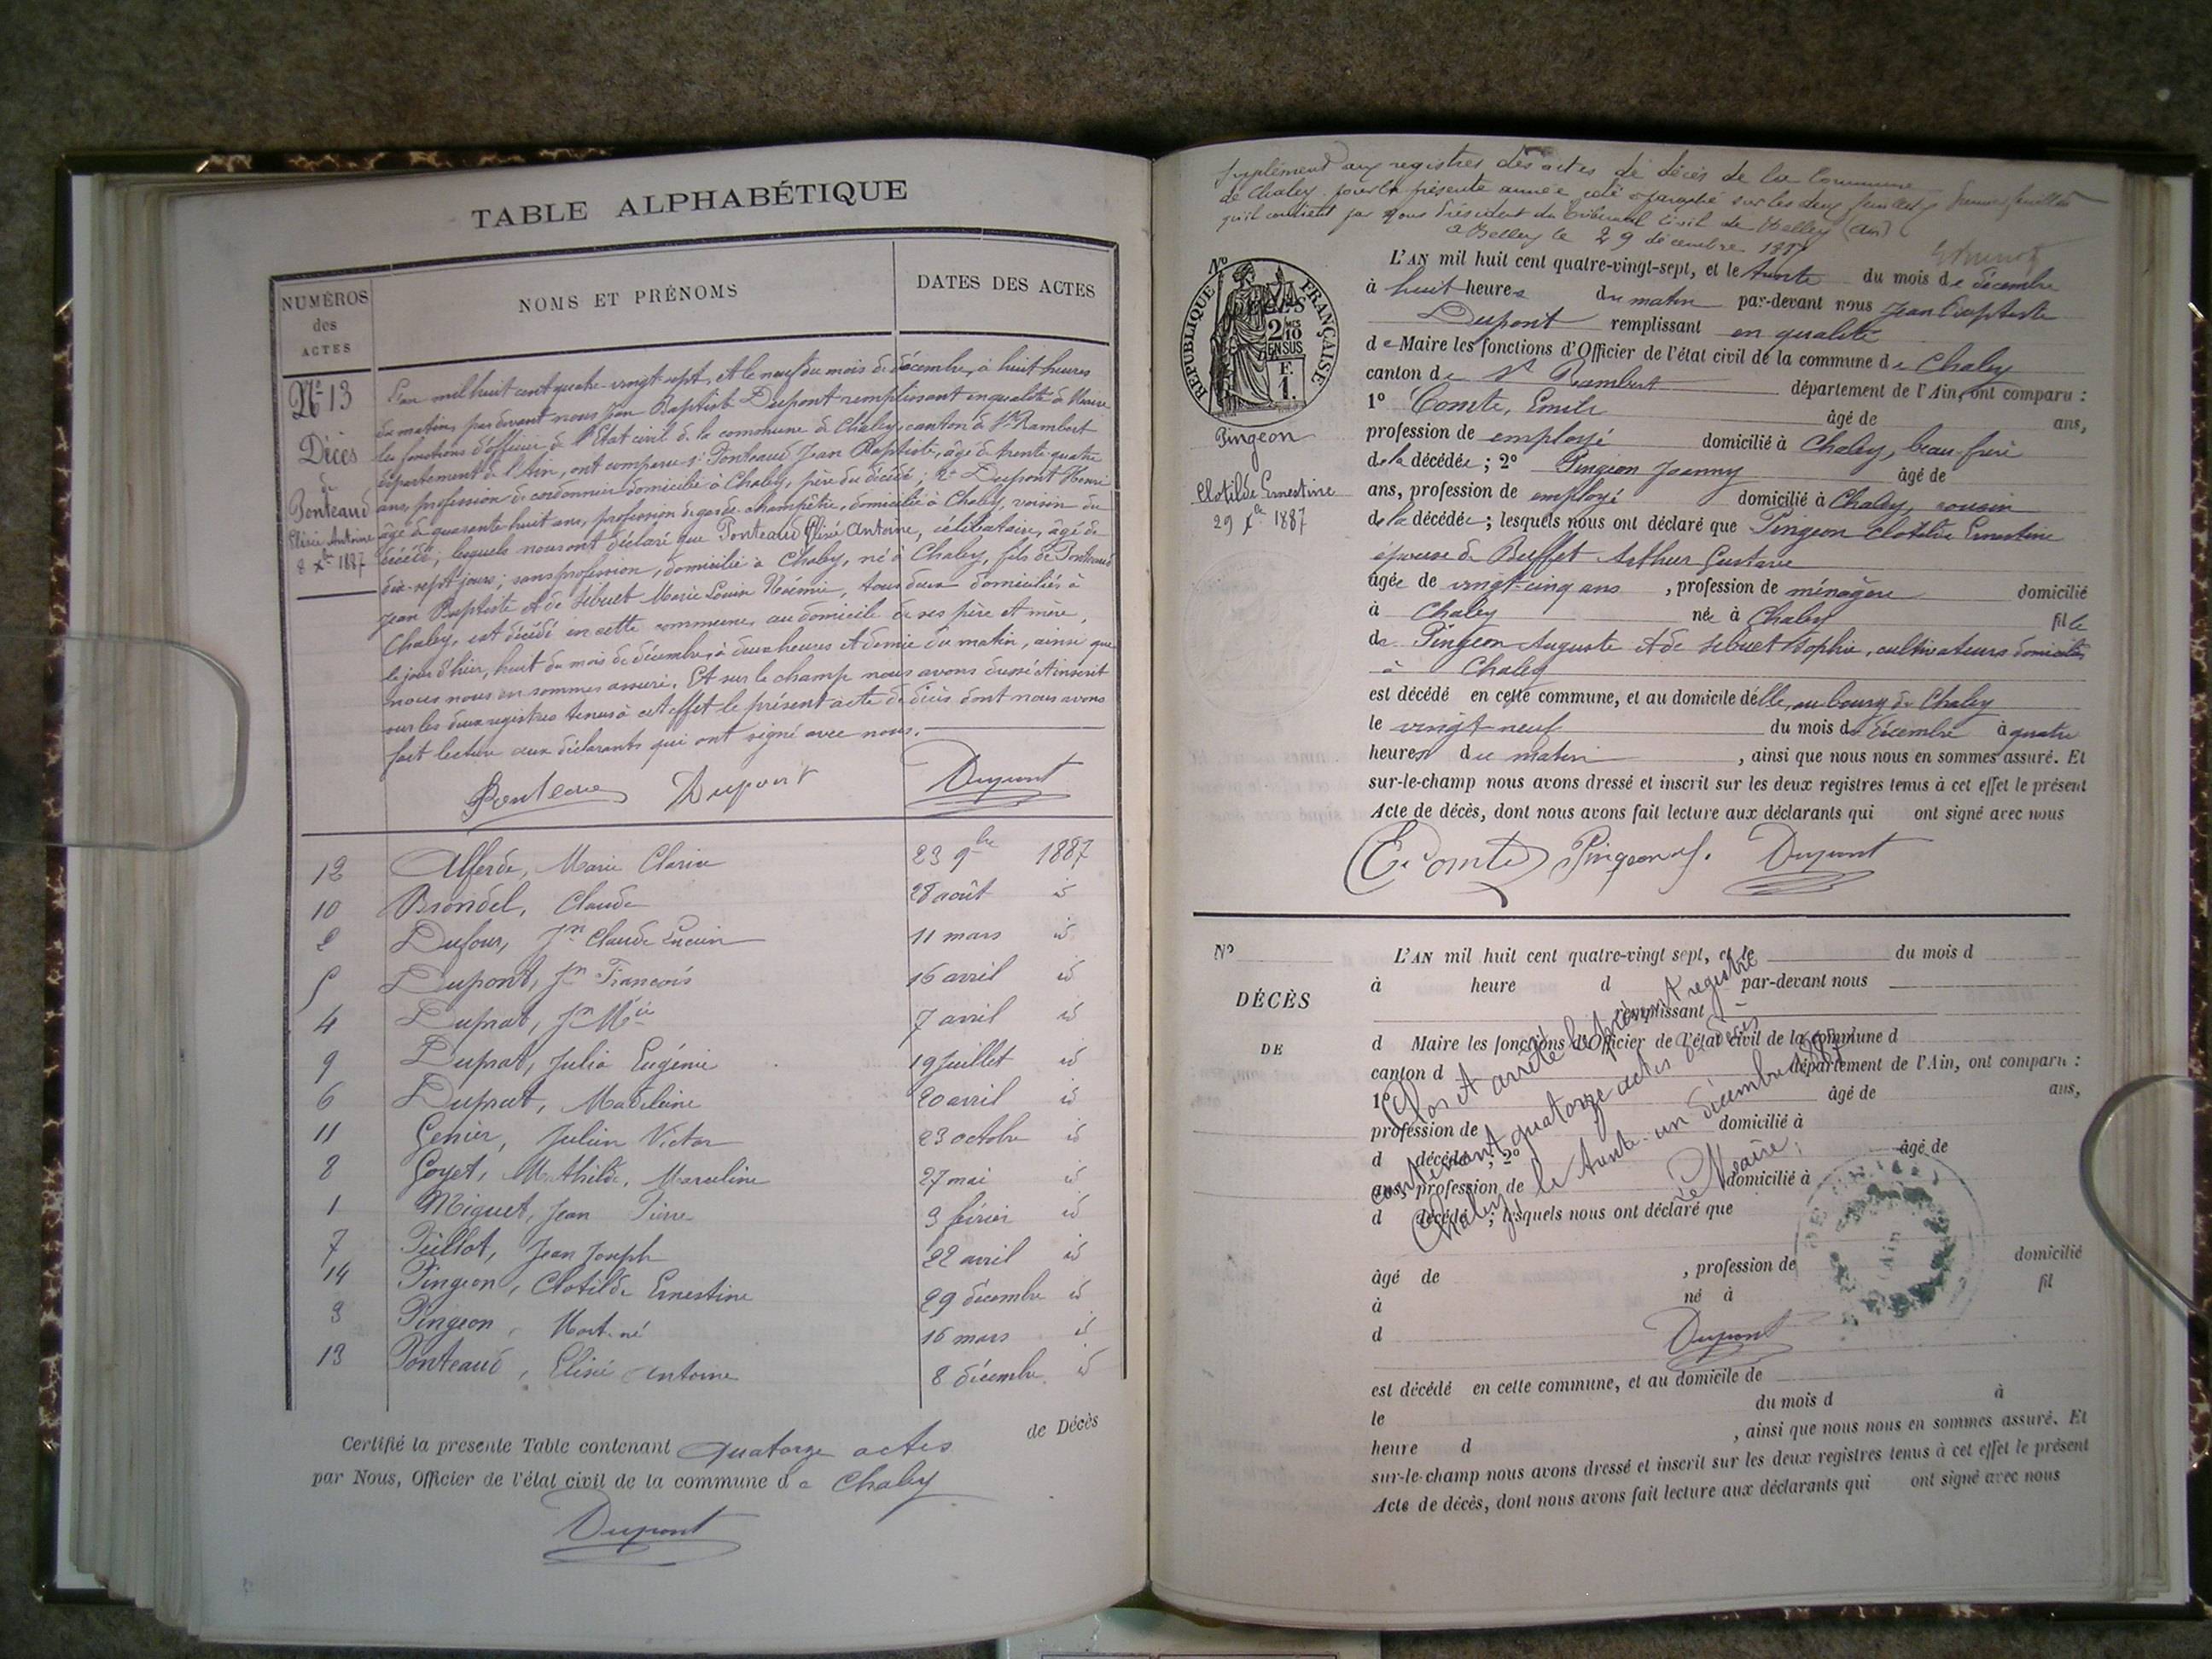 TABLE ALPHABÉTIQUE
NUMÉROS des ACTES
NOMS ET PRÉNOMS
DATES DES ACTES
N° 13
Décès
de
Ponteaud
Elisée Antoine
8 Xbre 1887
L'an mil huit cent quatre-vingt-sept, et le neuf du mois de décembre, à huit heures
du matin, par devant nous Jean Baptiste Dupont remplissant en qualité de Maire
les fonctions d'officier de l'Etat civil de la commune de Chaley, canton de St Rambert
département de l'Ain, ont comparu 1° Ponteaud Jean Baptiste, âgé de trente quatre
ans, profession de cordonnier domicilié à Chaley, père du décédé ; 2° Dupont Henri
âgé de quarante huit ans, profession de garde-champêtre, domicilié à Chaley, voisin du
décédé ; lesquels nous ont déclaré que Ponteaud Elisée Antoine, célibataire, âgé de
dix-sept jours ; sans profession, domicilié à Chaley, né à Chaley, fils de Ponteaud
Jean Baptiste et de Sibuet Marie Louise Noémie, tous deux domiciliés à
Chaley, est décédé en cette commune, au domicile de ses père et mère,
le jour d'hier, huit du mois de décembre, à deux heures et demie du matin, ainsi que
nous nous en sommes assuré. Et sur le champ nous avons dressé et inscrit
sur les deux registres tenus à cet effet le présent acte de décès dont nous avons
fait lecture aux déclarants qui ont signé avec nous.
Ponteaud Dupont Dupont
12 Alferde, Marie Clarisse 23 9bre 1887
10 Brondel, Claude 28 août id
2 Dufour, Jn Claude Lucien 11 mars id
5 Dupont, Jn François 16 avril id
4 Duprat, Jn Mie 7 avril id
9 Duprat, Julie Eugénie 19 juillet id
6 Duprat, Madeleine 20 avril id
11 Genier, Julien Victor 23 octobre id
8 Goyet, Mathilde, Marceline 27 mai id
1 Miguet, Jean Pierre 3 février id
7 Peillot, Jean Joseph 22 avril id
14 Pingeon, Clotilde Ernestine 29 décembre id
3 Pingeon, Mort-né 16 mars id
13 Ponteaud, Elisée Antoine 8 décembre id
Certifié la presente Table contenant quatorze actes de Décès
par Nous, Officier de l'état civil de la commune de Chaley
Dupont
Supplément aux registres des actes de décès de la Commune
de Chaley pour la présente année coté & paraphé sur les deux feuillets
qu'il contient par Nous Président du Tribunal Civil de Belley (Ain)
à Belley le 29 décembre 1887
N°
RÉPUBLIQUE FRANÇAISE
2/10 EN SUS
F.
1.
Pingeon
Clotilde Ernestine
29 Xbre 1887
L'AN mil huit cent quatre-vingt-sept, et le trente du mois de décembre
à huit heures du matin par-devant nous Jean Baptiste
Dupont remplissant en qualité
de Maire les fonctions d'Officier de l'état civil de la commune de Chaley
canton de St Rambert département de l'Ain, ont comparu :
1° Comte, Emile âgé de ans,
profession de employé domicilié à Chaley, beau-frère
de la décédée ; 2° Pingeon Joanny âgé de
ans, profession de employé domicilié à Chaley, cousin
de la décédée ; lesquels nous ont déclaré que Pingeon Clotilde Ernestine
épouse de Buffet Arthur Gustave
âgée de vingt-cinq ans , profession de ménagère domicilié
à Chaley née à Chaley fille
de Pingeon Auguste et de Sibuet Sophie, cultivateurs domiciliés
à Chaley
est décédé en cette commune, et au domicile d'elle, au bourg de Chaley
le vingt-neuf du mois de décembre à quatre
heures du matin , ainsi que nous nous en sommes assuré. Et
sur-le-champ nous avons dressé et inscrit sur les deux registres tenus à cet effet le présent
Acte de décès, dont nous avons fait lecture aux déclarants qui ont signé avec nous
E. Comte Pingeon J. Dupont
N°
DÉCÈS
DE
L'AN mil huit cent quatre-vingt sept, et le du mois d
à heure d par-devant nous
remplissant
d Maire les fonctions d'Officier de l'état civil de la commune d
canton d département de l'Ain, ont comparu :
1° âgé de ans,
profession de domicilié à
d décédé ; 2° âgé de
ans, profession de domicilié à
d décédé ; lesquels nous ont déclaré que
âgé de , profession de domicilié
à né à fil
d
est décédé en cette commune, et au domicile de
le du mois d à
heure d , ainsi que nous nous en sommes assuré. Et
sur-le-champ nous avons dressé et inscrit sur les deux registres tenus à cet effet le présent
Acte de décès, dont nous avons fait lecture aux déclarants qui ont signé avec nous
Clos et arrêté le présent registre
contenant quatorze actes de décès
Chaley, le trente-un décembre 1887
Le Maire,
Ain
Dupont